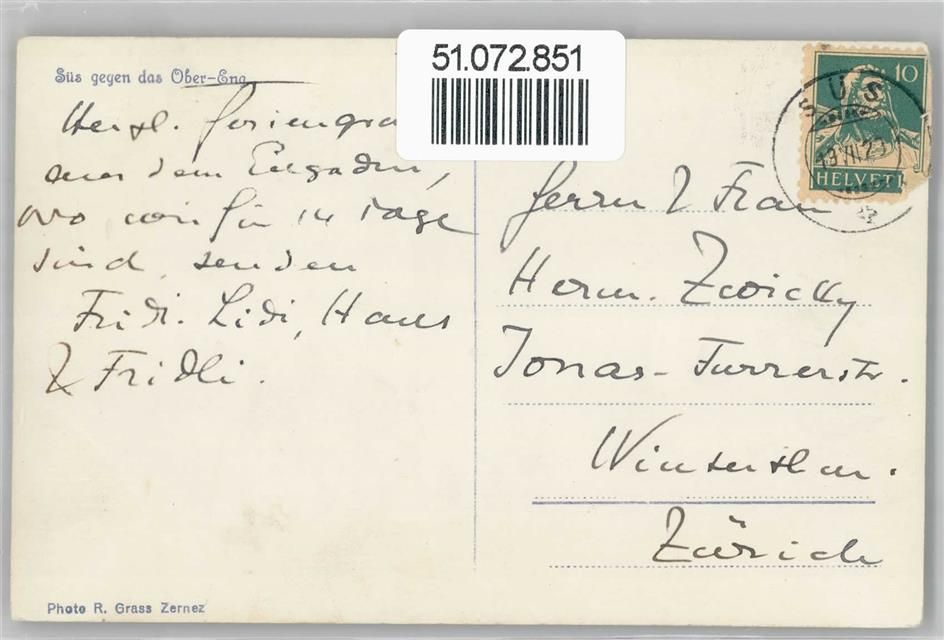 51.072.851
Süs gegen das Ober-Eng
Herzl. Feriengrü
aus dem Engadin,
wo wir für 14 Tage
sind, senden
Fridi. Lidi, Hans
& Fridli.
Photo R. Grass Zernez
10
HELVETI
SÜS
Herrn & Frau
Herm. Zwicky
Jonas-Furrerstr.
Winterthur.
Zürich